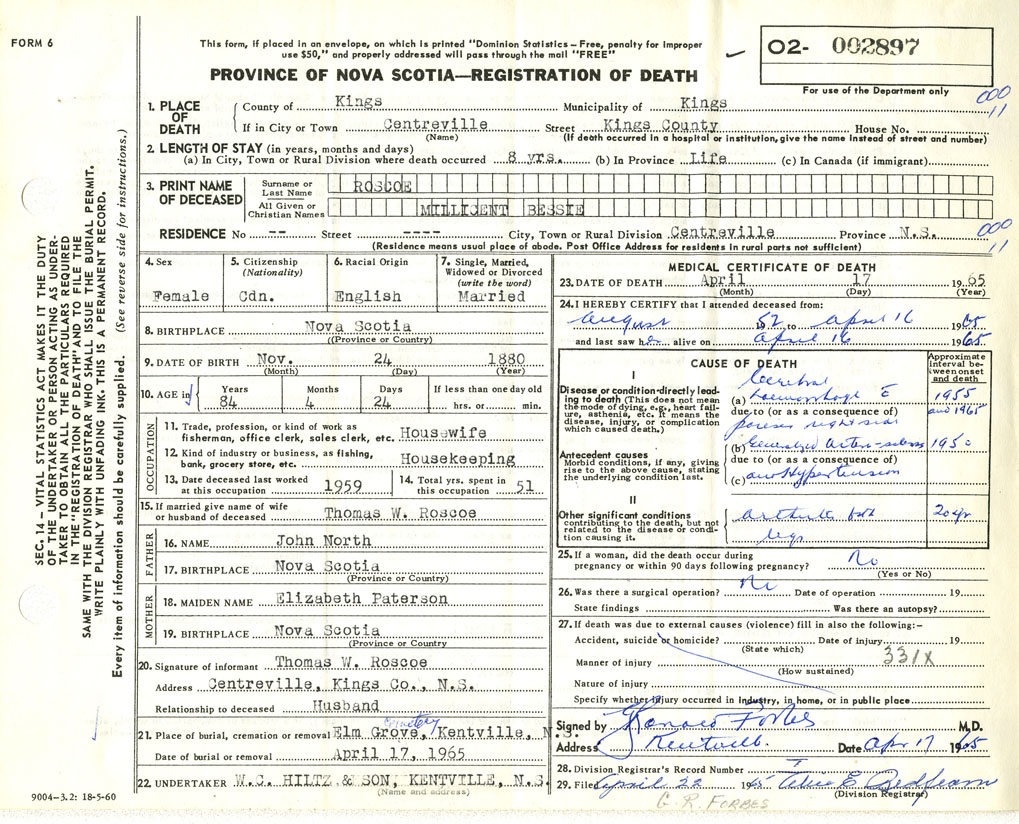 FORM 6
This form, if placed in an envelope, on which is printed "Dominion Statistics – Free, penalty for improper
use $50," and properly addressed will pass through the mail "FREE"
PROVINCE OF NOVA SCOTIA—REGISTRATION OF DEATH
O2- 002897
For use of the Department only
000
11
1. PLACE OF DEATH
County of Kings Municipality of Kings
If in City or Town Centreville Street Kings County House No.
(Name) (If death occurred in a hospital or institution, give the name instead of street and number)
2. LENGTH OF STAY (in years, months and days)
(a) In City, Town or Rural Division where death occurred 8 yrs. (b) In Province Life (c) In Canada (if immigrant)
3. PRINT NAME OF DECEASED
Surname or Last Name ROSCOE
All Given or Christian Names MILLICENT BESSIE
RESIDENCE No -- Street ---- City, Town or Rural Division Centreville Province N.S.
000
11
(Residence means usual place of abode. Post Office Address for residents in rural parts not sufficient)
4. Sex
Female
5. Citizenship
(Nationality)
Cdn.
6. Racial Origin
English
7. Single, Married, Widowed or Divorced
(write the word)
Married
8. BIRTHPLACE Nova Scotia
(Province or Country)
9. DATE OF BIRTH Nov. 24 1880
(Month) (Day) (Year)
10. AGE in
Years Months Days If less than one day old
84 4 24 hrs. or min.
OCCUPATION
11. Trade, profession, or kind of work as
fisherman, office clerk, sales clerk, etc. Housewife
12. Kind of industry or business, as fishing,
bank, grocery store, etc. Housekeeping
13. Date deceased last worked at this occupation 1959
14. Total yrs. spent in this occupation 51
15. If married give name of wife
or husband of deceased Thomas W. Roscoe
FATHER
16. NAME John North
17. BIRTHPLACE Nova Scotia
(Province or Country)
MOTHER
18. MAIDEN NAME Elizabeth Paterson
19. BIRTHPLACE Nova Scotia
(Province or Country)
20. Signature of informant Thomas W. Roscoe
Address Centreville, Kings Co., N.S.
Relationship to deceased Husband
21. Place of burial, cremation or removal Elm Grove, cemetery Kentville, N.S.
Date of burial or removal April 17, 1965
22. UNDERTAKER W.C. HILTZ & SON, KENTVILLE, N.S.
(Name and address)
MEDICAL CERTIFICATE OF DEATH
23. DATE OF DEATH April 17 1965
(Month) (Day) (Year)
24. I HEREBY CERTIFY that I attended deceased from:
August 1952 to April 16 1965
and last saw her alive on April 16 1965
CAUSE OF DEATH
Approximate interval between onset and death
I
Disease or condition directly leading to death (This does not mean
the mode of dying, e.g., heart failure, asthenia, etc. It means the
disease, injury, or complication which caused death.)
(a) Cerebral Haemorrhage c̄ 1955
due to (or as a consequence of) and 1965
paresis right side
Antecedent causes
Morbid conditions, if any, giving
rise to the above cause, stating
the underlying condition last.
(b) Generalized Arterio-sclerosis 1950
due to (or as a consequence of)
(c) and Hypertension
II
Other significant conditions
contributing to the death, but not
related to the disease or condition causing it.
Arthritis both 20 yr
legs
25. If a woman, did the death occur during
pregnancy or within 90 days following pregnancy? No
(Yes or No)
26. Was there a surgical operation? No Date of operation 19
State findings Was there an autopsy?
27. If death was due to external causes (violence) fill in also the following:-
Accident, suicide or homicide? Date of injury 19
(State which)
Manner of injury 331X
(How sustained)
Nature of injury
Specify whether injury occurred in industry, in home, or in public place
Signed by Forbes M.D.
Address Kentville. Date Apr 17 1965
28. Division Registrar's Record Number
29. Filed April 22 1965
(Division Registrar)
G. R. FORBES
9004-3.2: 18-5-60
SEC. 14 — VITAL STATISTICS ACT MAKES IT THE DUTY
OF THE UNDERTAKER OR PERSON ACTING AS UNDER-
TAKER TO OBTAIN ALL THE PARTICULARS REQUIRED
IN THE "REGISTRATION OF DEATH" AND TO FILE THE
SAME WITH THE DIVISION REGISTRAR WHO SHALL ISSUE THE BURIAL PERMIT.
WRITE PLAINLY WITH UNFADING INK. THIS IS A PERMANENT RECORD.
Every item of information should be carefully supplied. (See reverse side for instructions.)